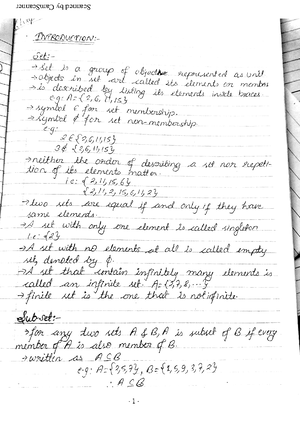 Scanned by CamScanner
INTRODUCTION:-
Set:-
→ Set is a group of objects represented as unit
→ objects in set are called its elements or member
→ is described by listing its elements inside braces.
e.g: A={2,6,11,15}
→ symbol ∈ for set membership.
→ symbol ∉ for set non-membership.
e.g:
2∈{2,6,11,15}
3∉{2,6,11,15}
→ neither the order of describing a set nor repeti-
tion of its elements matter.
i.e: {2,11,15,6}
{2,11,2,15,6,11,2}
→ two sets are equal if and only if they have
same elements.
→ A set with only one element is called singleton
i.e: {2}.
→ A set with no elements at all is called empty
set, denoted by ϕ.
→ A set that contain infinitely many elements is
called an infinite set. A={2,7,8,...}
→ finite set is the one that is not infinite.
Sub-set:-
→ for any two sets A & B, A is subset of B if every
member of A is also member of B.
→ written as A⊆B
e.g: A={3,5,7}, B={1,5,9,3,7,2}
∴ A⊆B
- 1 -